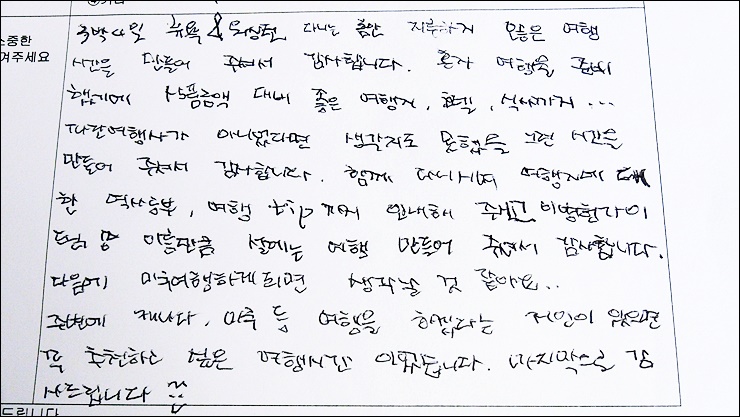 소중한
겨주세요
3박4일 뉴욕 & 워싱턴 다니는 동안 지루하지 않은 여행
시간을 만들어 주셔서 감사합니다. 혼자 여행을 준비
했기에 상품금액 대비 좋은 여행지, 호텔, 식사까지...
타관여행사가 아니었다면 생각지도 못했을 그런 시간을
만들어 주셔서 감사합니다. 함께 다니시며 여행지에 대
한 역사공부, 여행 tip까지 안내해 주셨고 가이
드님 이름만큼 설레는 여행 만들어 주셔서 감사합니다.
다음에 미주여행하게되면 생각날 것 같아요..
주변에 캐나다, 미주 등 여행을 하겠다는 지인이 있으면
꼭 추천하고 싶은 여행시간 이었습니다. 마지막으로 감
사드립니다
드립니다